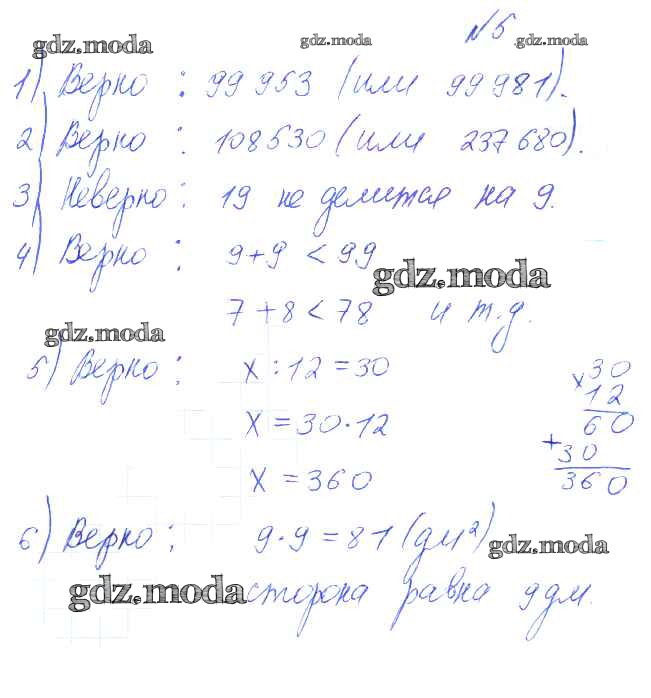 №5
gdz.moda gdz.moda gdz.moda
1) Верно : 99 953 (или 99 981).
2) Верно : 108530 (или 237 680).
3) Неверно : 19 не делится на 9.
4) Верно : 9+9 < 99
gdz.moda
7+8<78 и т.д.
gdz.moda
5) Верно : x : 12 = 30
x = 30·12
x = 360
30
× 12
60
+ 30
360
6) Верно : 9·9 = 81 (дм²)
gdz.moda
gdz.moda сторона равна 9 дм.